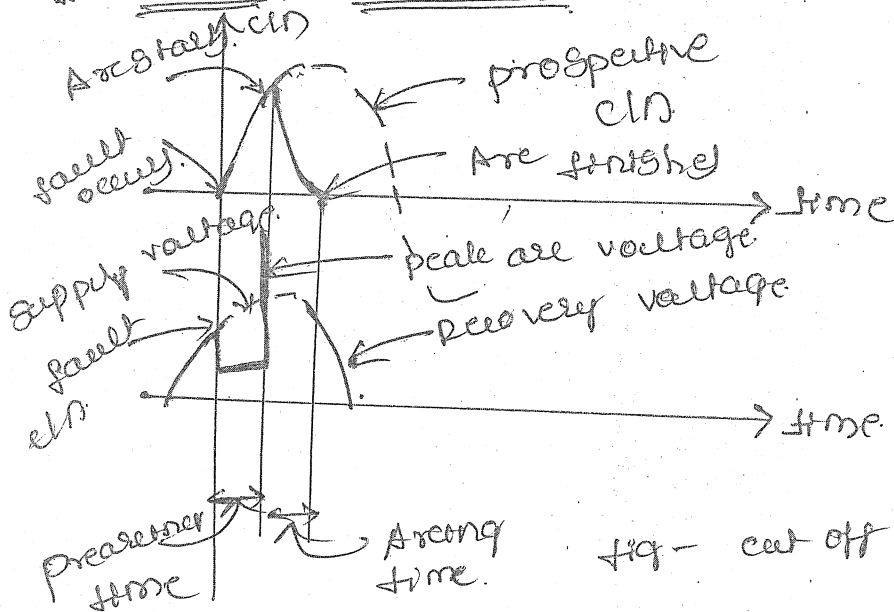 Arc starts
c/n
prospective
c/n
fault
occurs.
Arc finished
time
supply voltage
peak arc voltage
recovery voltage
fault
c/n.
time.
Prearcing
time
Arcing
time.
fig - cut off